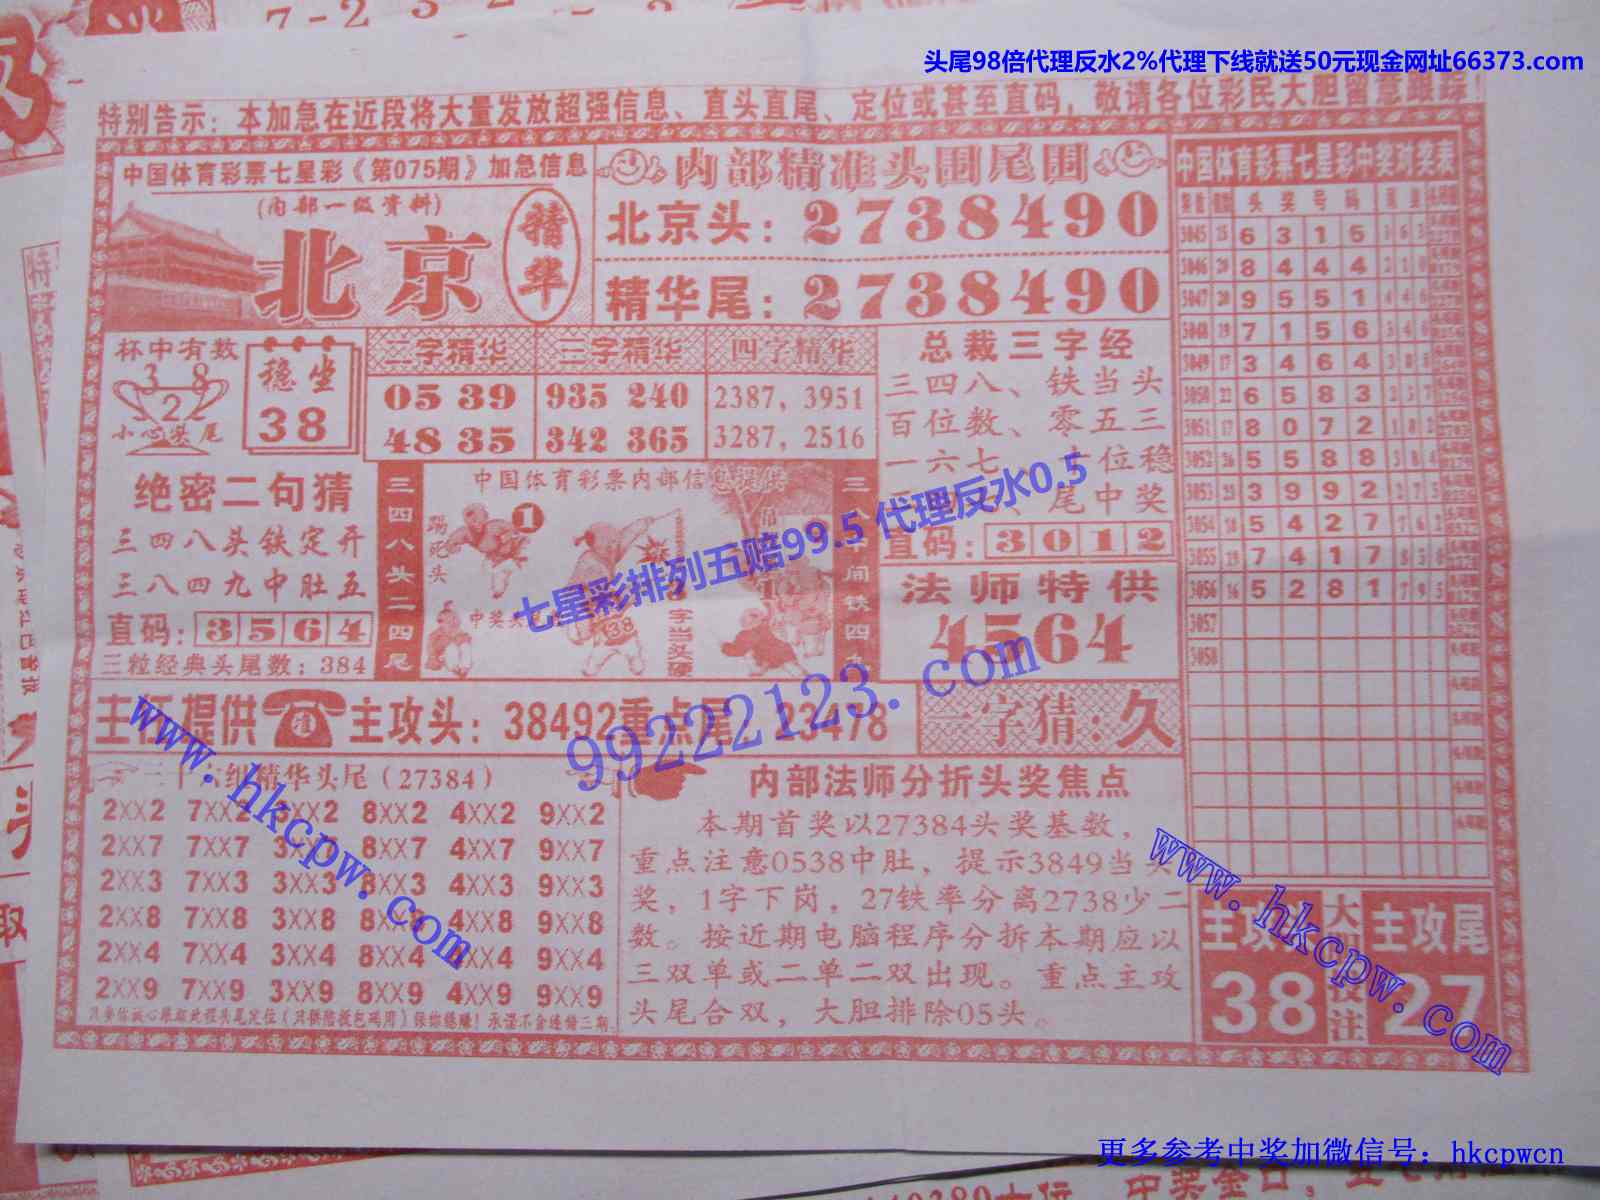 头尾98倍代理反水2%代理下线就送50元现金网址66373.com
特别告示：本加急在近段将大量发放超强信息、直头直尾、定位或甚至直码，敬请各位彩民大胆留意跟踪！
中国体育彩票七星彩《第075期》加急信息
(内部一级资料)
北京
精华
内部精准头围尾围
北京头：2738490
精华尾：2738490
杯中有数
3 8
2
小心头尾
稳坐
38
二字精华 三字精华 四字精华
05 39 935 240 2387，3951
48 35 342 365 3287，2516
总裁三字经
三四八、铁当头
百位数、零五三
一六七、十位稳
尾中奖
直码：3012
绝密二句猜
三四八头铁定开
三八四九中肚五
直码：3564
三粒经典头尾数：384
三四八头二四尾
中国体育彩票内部信息提供
踢死头
1
38
字当头硬
法师特供
4564
七星彩排列五赔99.5 代理反水0.5
99222123.com
主任提供
准
主攻头：38492重点尾：23478
一字猜：久
三十六组精华头尾（27384）
2XX2 7XX2 3XX2 8XX2 4XX2 9XX2
2XX7 7XX7 3XX7 8XX7 4XX7 9XX7
2XX3 7XX3 3XX3 8XX3 4XX3 9XX3
2XX8 7XX8 3XX8 8XX8 4XX8 9XX8
2XX4 7XX4 3XX4 8XX4 4XX4 9XX4
2XX9 7XX9 3XX9 8XX9 4XX9 9XX9
内部法师分折头奖焦点
本期首奖以27384头奖基数，
重点注意0538中肚，提示3849当头
奖，1字下岗，27铁率分离2738少二
数。按近期电脑程序分拆本期应以
三双单或二单二双出现。重点主攻
头尾合双，大胆排除05头。
中国体育彩票七星彩中奖对奖表
头奖号码
3045 6 3 1 5
3046 8 4 4 4
3047 9 5 5 1
3048 7 1 5 6
3049 3 4 6 4
3050 6 5 8 3
3051 8 0 7 2
3052 5 5 8 8
3053 3 9 9 2
3054 5 4 2 7
3055 7 4 1 7
3056 5 2 8 1
3057
3058
主攻头 38
大胆投注
主攻尾 27
www.hkcpw.com
www.hkcpw.com
更多参考中奖加微信号：hkcpwcn